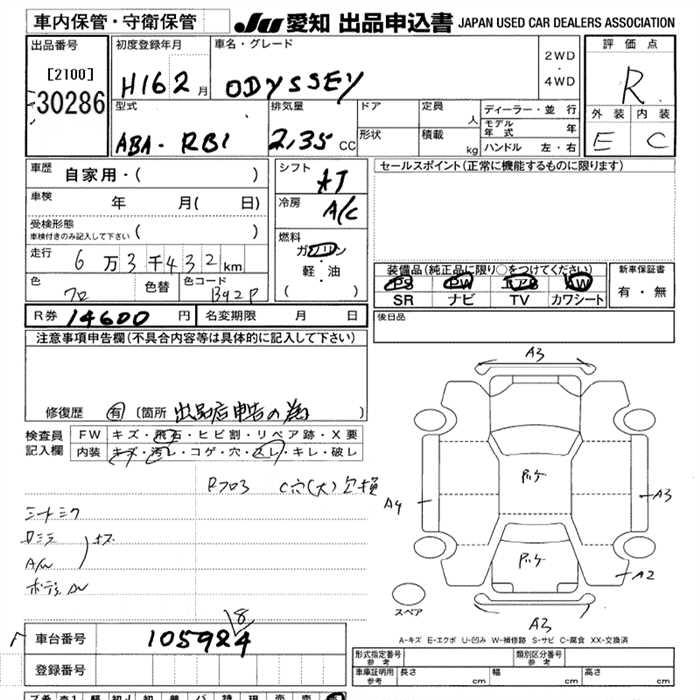 車内保管・守衛保管 JU 愛知 出品申込書 JAPAN USED CAR DEALERS ASSOCIATION
出品番号 初度登録年月 車名・グレード 2WD・4WD 評価点
[2100] H16 2月 ODYSSEY R
30286
型式 排気量 ドア 定員 人 ディーラー・並行 外装 内装
形状 積載 kg モデル年式 年
ABA-RB1 2.35 CC ハンドル 左・右 E C
車歴 自家用・( ) シフト AT セールスポイント(正常に機能するものに限ります)
車検 年 月( 日) 冷房 A/C
受検形態
車検付きのみ記入して下さい ( )
燃料 ガソリン・軽・油 ( )
走行 6万3千432km
装備品(純正品に限り○をつけてください) 新車保証書
色 クロ 色替 色コード B92P
PS PW エアB AW 有・無
SR ナビ TV カワシート
R券 14600円 名変期限 月 日 後日品
注意事項申告欄(不具合内容等は具体的に記入して下さい)
A3
修復歴 有 (箇所 出品店申告の為)
検査員記入欄 FW キズ・飛石・ヒビ割・リペア跡・X要
内装 キズ・汚レ・コゲ・穴・スレ・キレ・破レ
A4 A3
A2
スペア A3
A-キズ E-エクボ U-凹み W-補修跡 S-サビ C-腐食 XX-交換済
車台番号 105924 8
登録番号
形式指定番号 参考 類別区分番号 参考
車庫証明用 参考 長さ cm 幅 cm 高さ cm